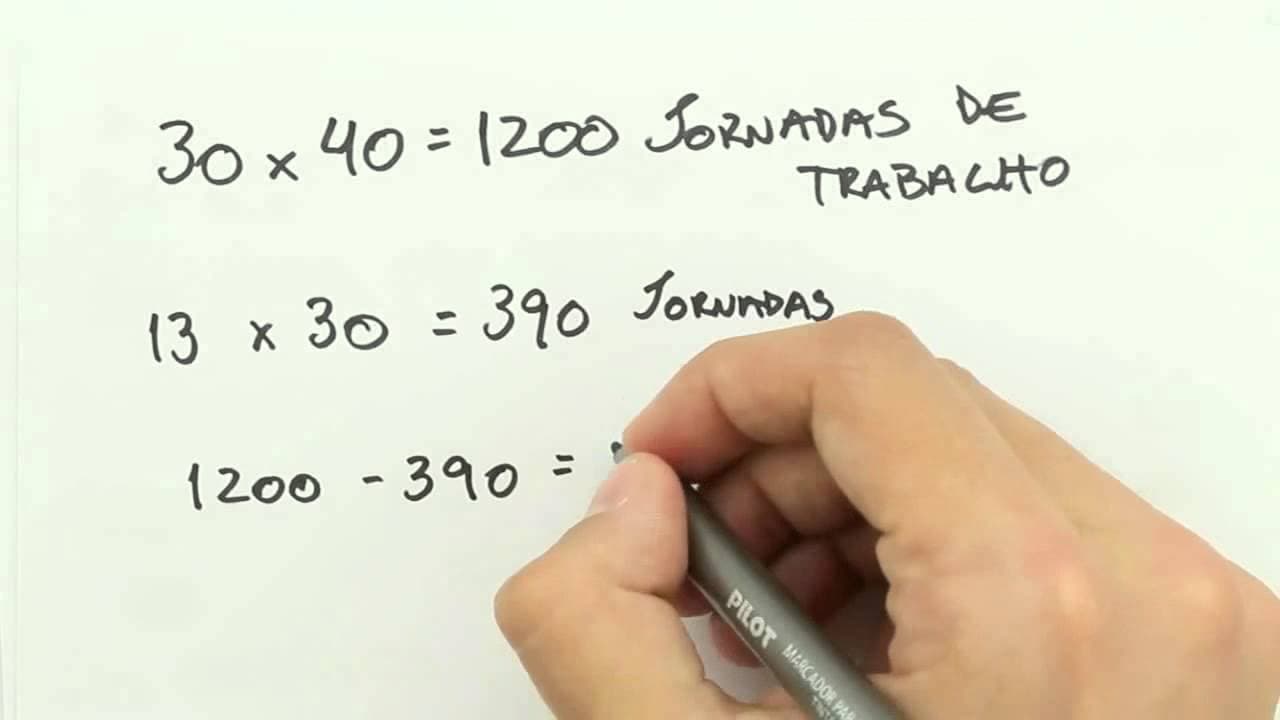 30 x 40 = 1200 JORNADAS DE
TRABALHO
13 x 30 = 390 JORNADAS
1200 - 390 =
PILOT
MARCADOR PAR